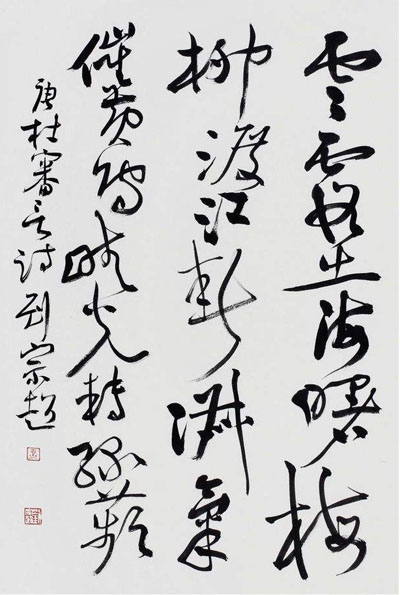 雲霞出海曙梅
柳渡江春淑氣
催黃鳥晴光轉綠蘋
唐杜審言詩劉宗超